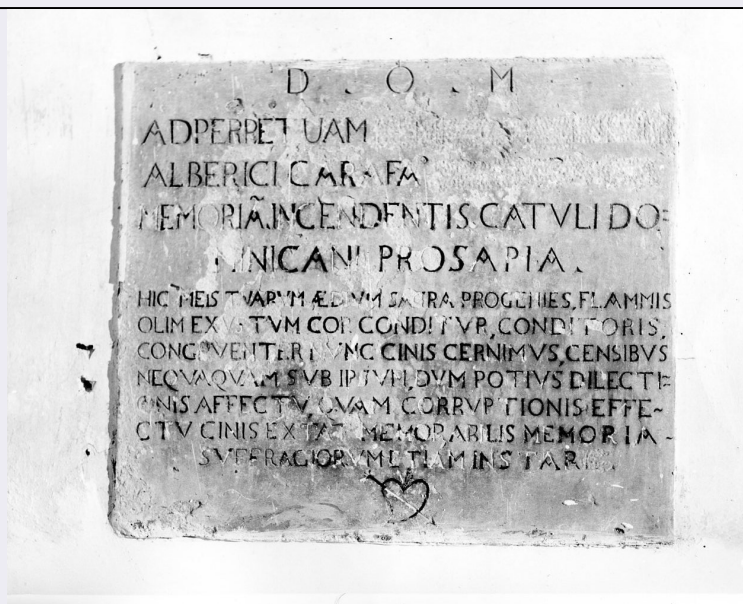 D . O . M
ADPERPETUAM
ALBERICI CARAFA
MEMORIÃ.INCENDENTIS CATVLI DO=
MINICANI PROSAPIA.
HIC MEIS TVARVM ÆDIVM SACRA PROGENIES, FLAMMIS
OLIM EXVSTVM COR CONDITVR, CONDITORIS.
CONGRVENTER CINIS CERNIMVS, CENSIBVS
NEQVAQVAM DVM POTIVS DILECTI=
ONIS AFFECTV, QVAM CORRVPTIONIS EFFE~
CTV CINIS EXTAT MEMORABILIS MEMORIA
SVFFRAGIORVM ETIAM INSTAR